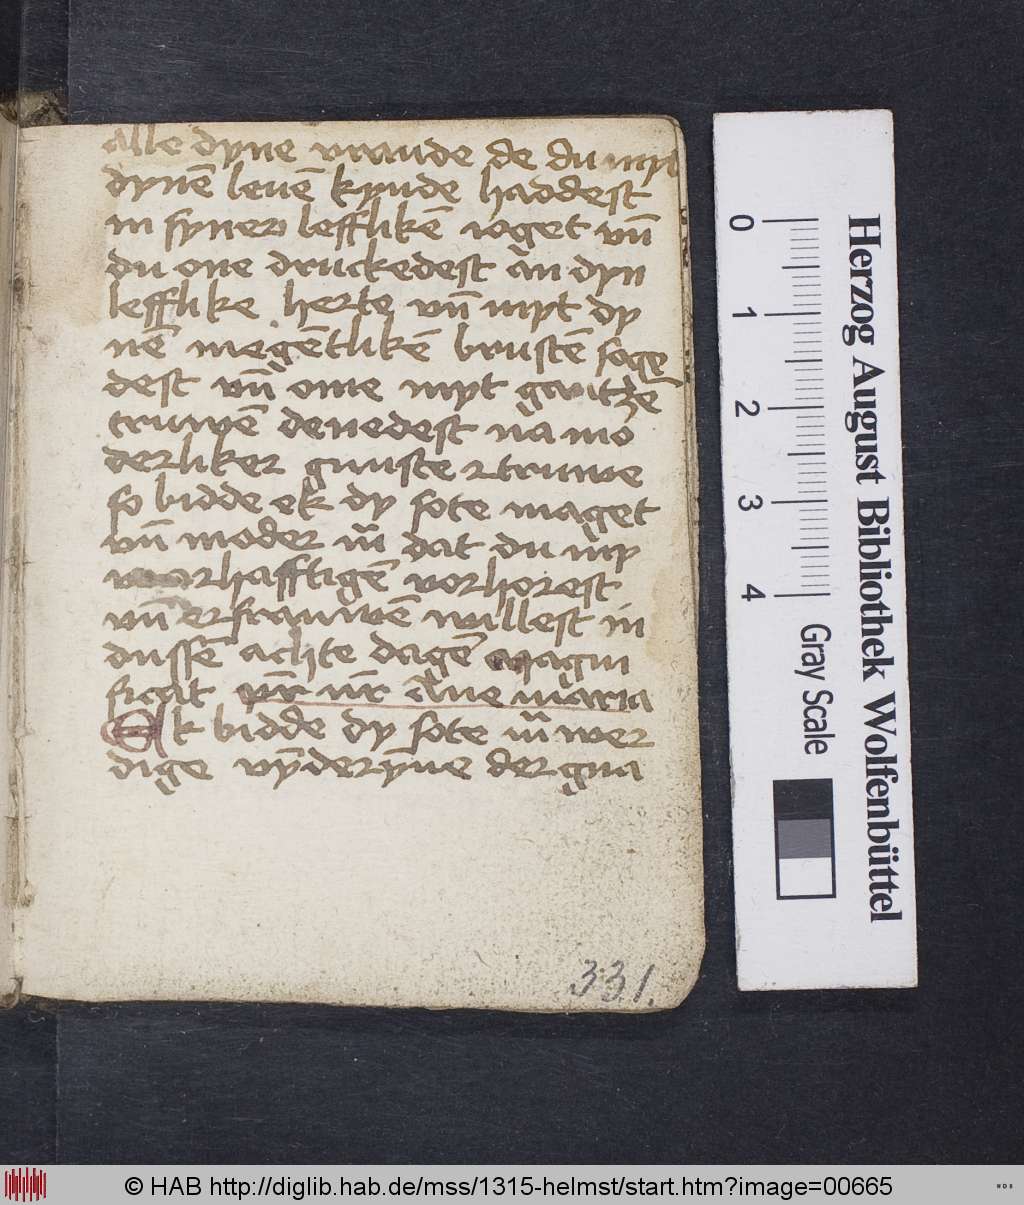 alle dyne vraude de du myt
dynē leuē kynde haddest
in syner lefflikē ioget vn̄
du one druckedest an dyn
lefflike herte vn̄ myt dy
nē megētlikē brustē soge
dest vn̄ ome myt gantzē
truwē denedest na mo
derliker gunste r truwe
so bidde ek dy sote maget
vn̄ moder m̄ dat du my
rhafftigē vorhorest
vn̄ erfrauwē willest in
dussē achte dagē magni
ficat Aue maria
Ek bidde dy sote m̄ wer
dige vȳderyne der gna
331.
Herzog August Bibliothek Wolfenbüttel
0 1 2 3 4
Gray Scale
© HAB http://diglib.hab.de/mss/1315-helmst/start.htm?image=00665